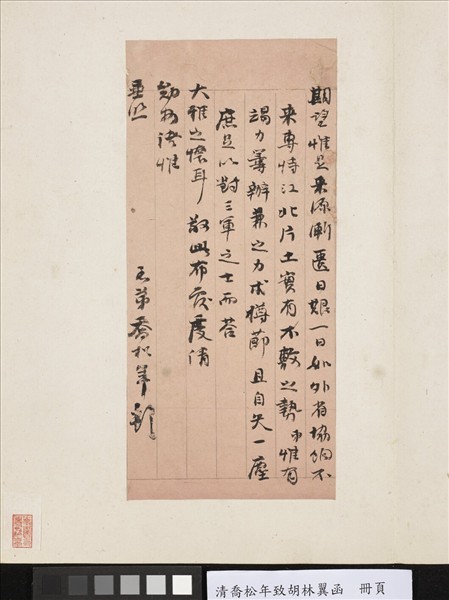 期望惟是来源漸匱日艱一日如外省協餉不
来專恃江北片土實有不敷之勢弟惟有
竭力籌辦兼之力求樽節且自矢一塵
庶足以對三軍之士而荅
大雅之懷耳此布覆虔請
勛安諸惟
垂照
弟喬松年頓
清喬松年致胡林翼函 冊頁